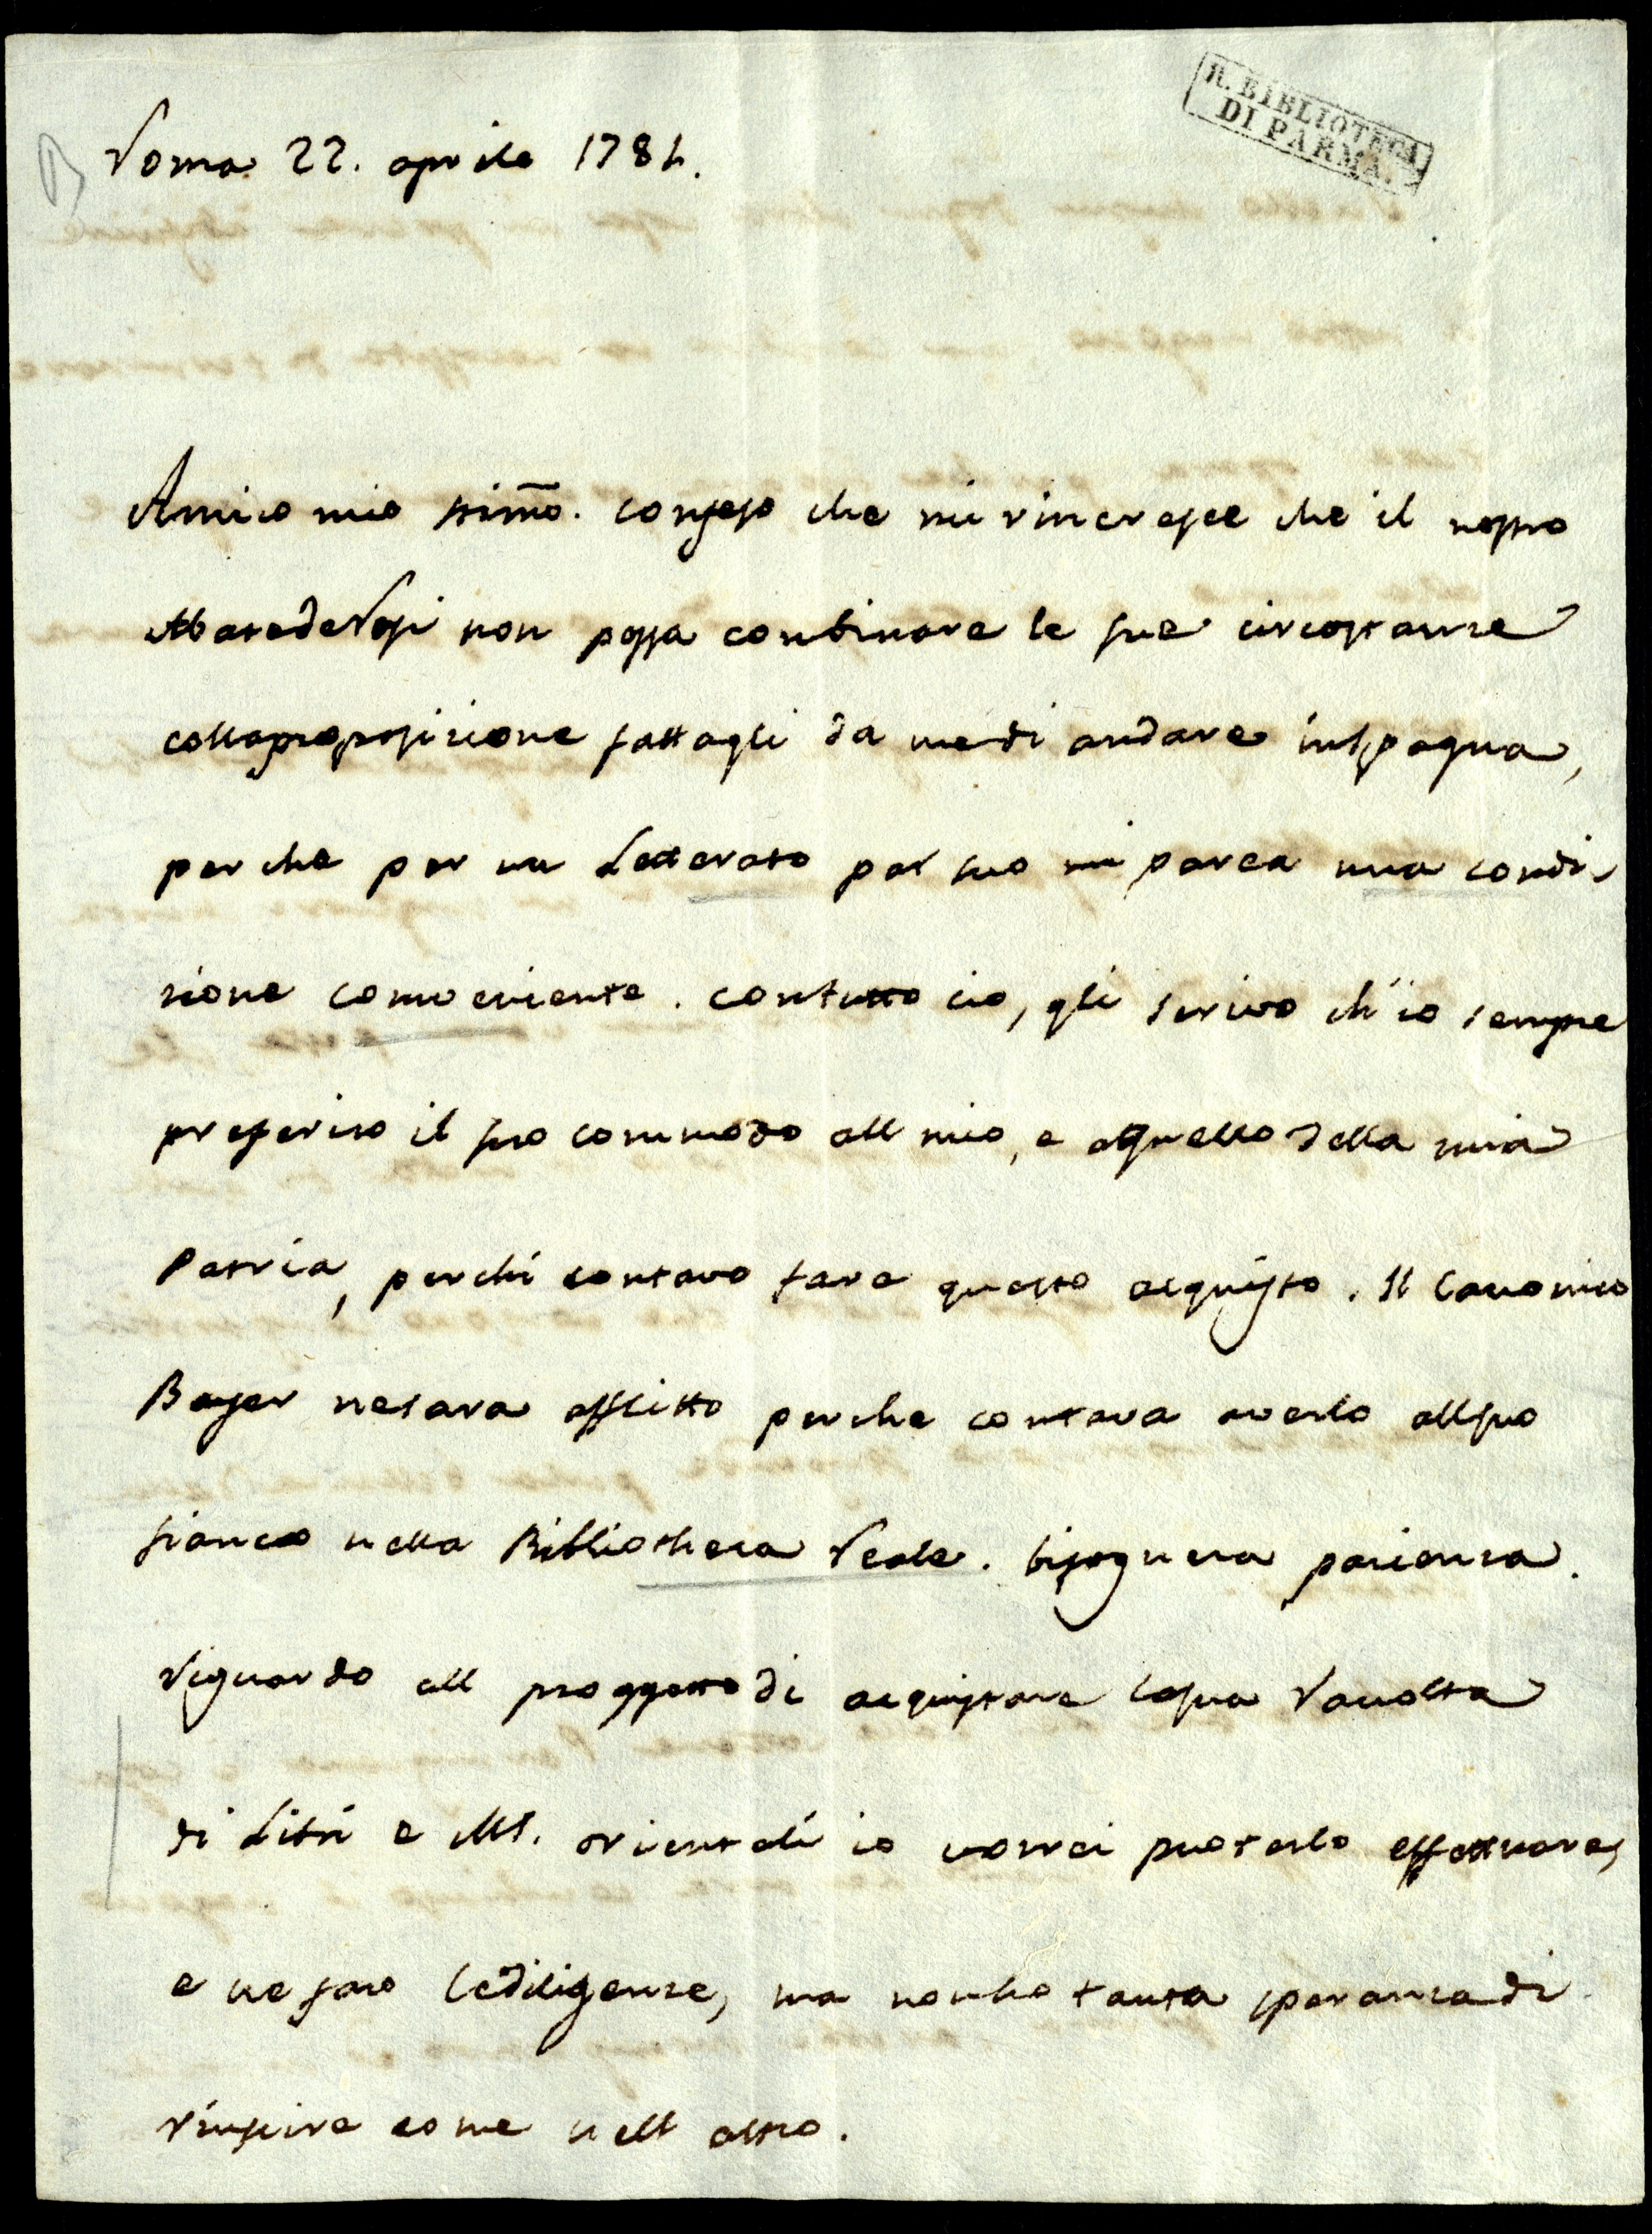 R. BIBLIOTECA
DI PARMA.
Roma 22. aprile 1784.
Amico mio stimo. confeso che mi rincresce che il nostro
Abate de Rosi non possa combinare le sue circostanze
colla proposizione fattagli da me di andare in Spagna,
perche per un Letterato par suo mi parea una condi-
zione conveniente. contutto cio, gli scrivo ch'io sempre
preferisco il suo commodo all mio, e a quello della mia
Patria, perchè contavo fare questo acquisto. Il Canonico
Bayer ne sara afflitto perche contava averlo all suo
fianco nella Bibliotheca Reale. bisognera pacienza.
Riguardo all proggetto di acquistare la sua Raccolta
di Libri e MS. orientali io vorrei puoterlo effettuare,
e ne faro le diligenze, ma non ho tanta speranza di
riuscire come nell altro.